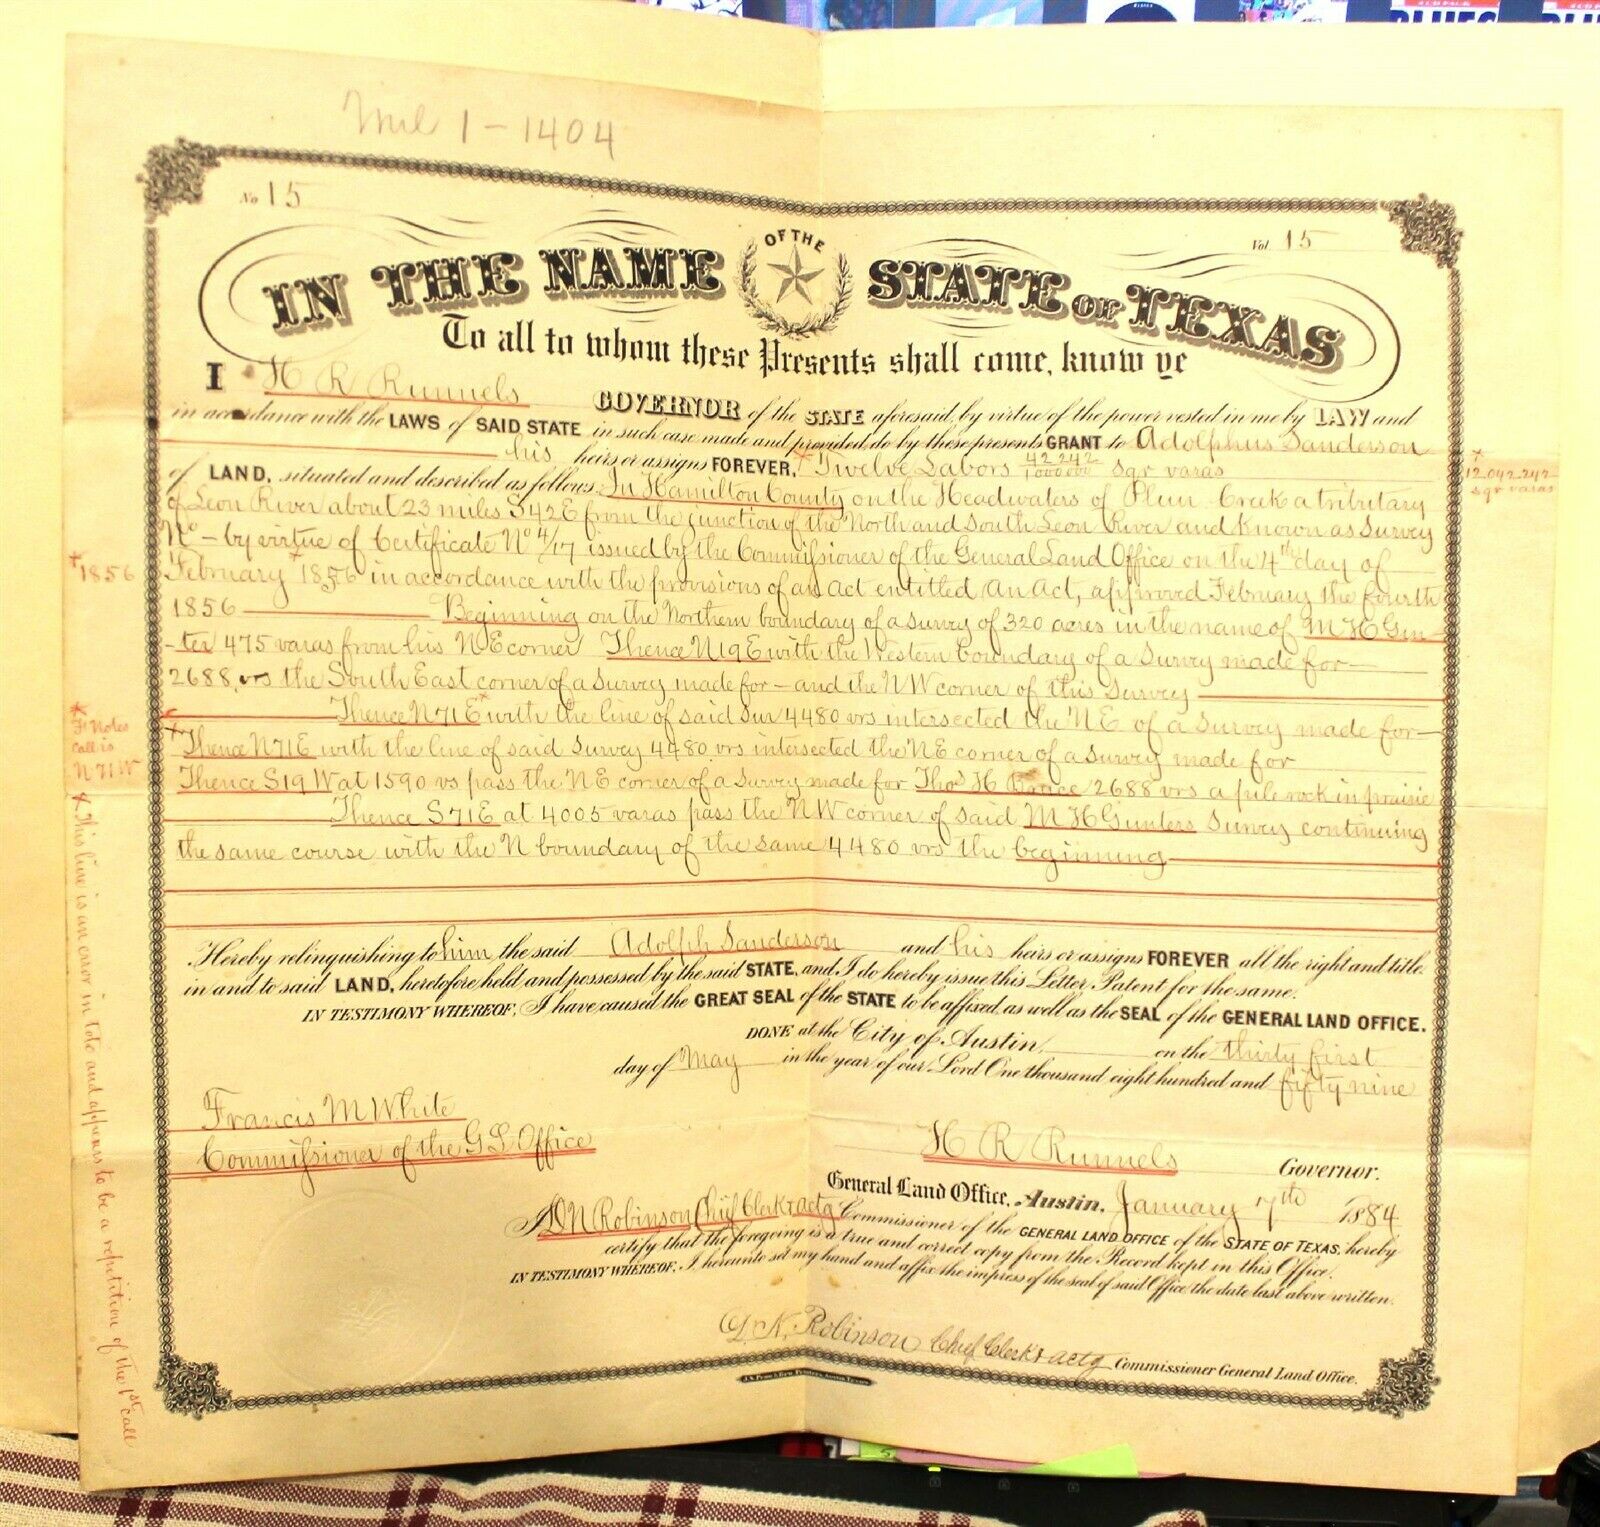 BLUES
Mil 1-1404
No 15
Vol. 15
IN THE NAME OF THE STATE OF TEXAS
To all to whom these Presents shall come, know ye
I H R Runnels GOVERNOR of the STATE aforesaid, by virtue of the power vested in me by LAW and
in accordance with the LAWS of SAID STATE in such case made and provided, do by these presents GRANT to Adolphus Sanderson
his heirs or assigns FOREVER, * Twelve Labors 42 242/1000 000 sqr varas
* 12.042.242 sqr varas
of LAND, situated and described as follows. In Hamilton County on the Headwaters of Plum Creek a tributary
of Leon River about 23 miles S42E from the junction of the North and South Leon River and Known as Survey
No - by virtue of Certificate No 4/17 issued by the Commissioner of the General Land Office on the 4th day of
* 1856
February * 1856 in accordance with the provisions of an act entitled An Act, approved February the fourth
1856 Beginning on the Northern boundary of a survey of 320 acres in the name of M H Gun-
-ter 475 varas from his NE corner Thence N19E with the Western boundary of a Survey made for
2688 vrs the South East corner of a Survey made for - and the NW corner of this Survey
Thence N71E * with the line of said Sur 4480 vrs intersected the NE of a Survey made for
* F. Notes
call is
N 71 W
* Thence N71E with the line of said Survey 4480 vrs intersected the NE corner of a Survey made for
Thence S19W at 1590 vs pass the NE corner of a Survey made for Thos H 2688 vrs a pile rock in prairie
Thence S71E at 4005 varas pass the NW corner of said M H Gunters Survey continuing
the same course with the N boundary of the same 4480 vrs the beginning
* This line is an error in toto and appears to be a repetition of the 1st call
Hereby relinquishing to him the said Adolph Sanderson and his heirs or assigns FOREVER all the right and title
in and to said LAND, heretofore held and possessed by the said STATE, and I do hereby issue this Letter Patent for the same.
IN TESTIMONY WHEREOF, I have caused the GREAT SEAL of the STATE to be affixed, as well as the SEAL of the GENERAL LAND OFFICE.
DONE at the City of Austin, on the thirty first
day of May in the year of our Lord One thousand eight hundred and fifty nine
Francis M White
Commissioner of the G L Office
H R Runnels Governor.
General Land Office, Austin, January 7th 1884
I, D N Robinson Chief Clerk & actg Commissioner of the GENERAL LAND OFFICE of the STATE OF TEXAS, hereby
certify that the foregoing is a true and correct copy from the Record kept in this Office.
IN TESTIMONY WHEREOF, I hereunto set my hand and affix the impress of the seal of said Office the date last above written.
D. N. Robinson Chief Clerk & actg Commissioner General Land Office.